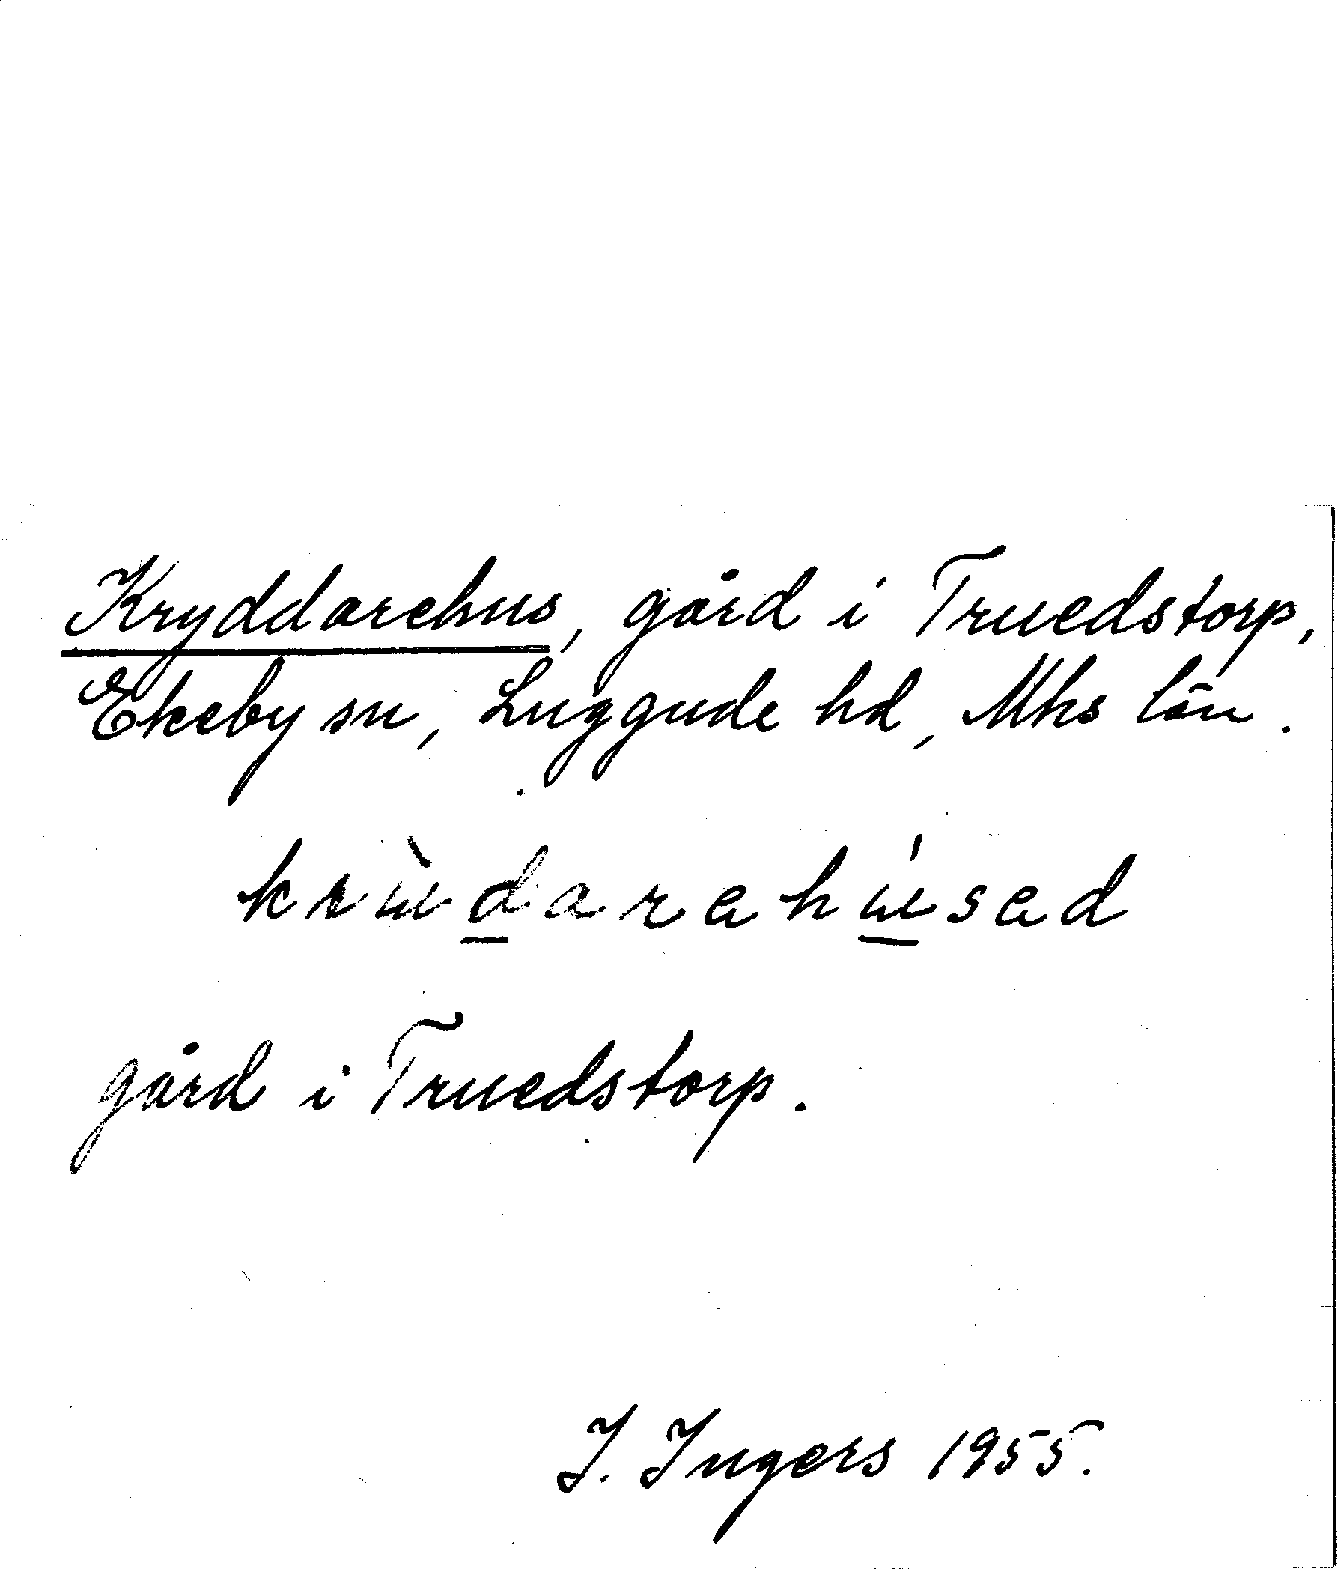 Kryddarehus, gård i Truedstorp,
Ekeby sn, Luggude hd, Mhs län.
krɯ̀darahɯ́sad
gård i Truedstorp.
I. Ingers 1955.